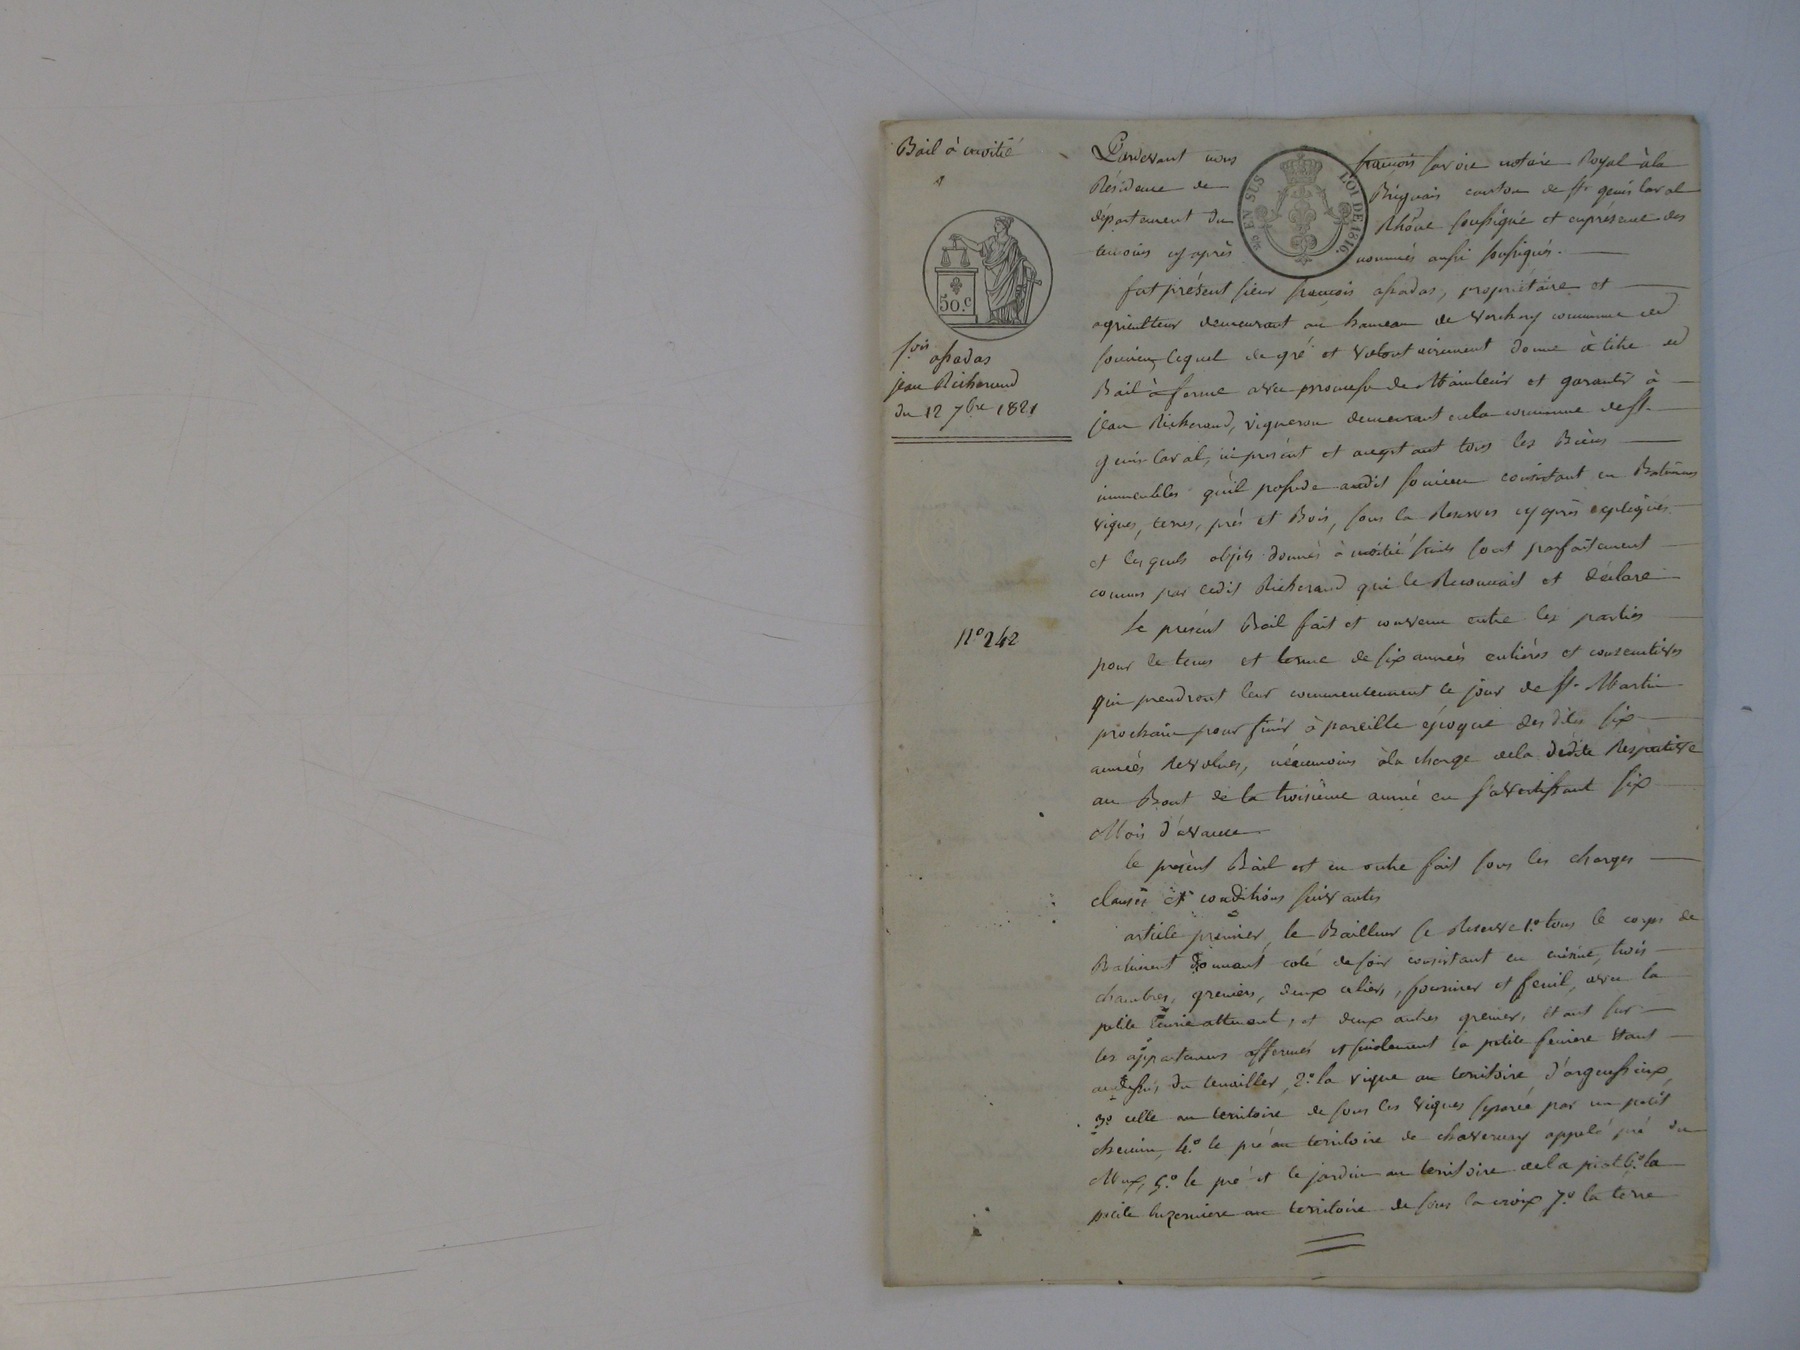 Bail à moitié
50.c
f.ois assadas
jean Richerand
du 12 7bre 1821
N° 242
EN SUS
LOI DE 1816.
Pardevant nous françois favoie notaire Royal à la
Résidence de Brignais canton de St genis laval
département du Rhône soussigné et en présence des
temoins cy après nommés aussi soussignés.
fut présent sieur françois assadas, propriétaire et
agriculteur demeurant au hameau de Verchery commune de
soucieu, lequel de gré et volontairement donne à titre de
Bail à ferme avec promesse de Maintenir et garantir à
jean Richerand, vigneron demeurant en la commune de St.
genis laval, ici présent et acceptant tous les Biens
immeubles qu'il possede audit soucieu consistant en Batimens
vignes, terres, prés et Bois, sous la Reserves cy après expliqués
et lesquels objets donnés à moitié fruits sont parfaitement
connus par ledit Richerand qui le Reconnait et déclare
Le présent Bail fait et convenu entre les parties
pour le tems et terme de six années entières et consecutives
qui prendront leur commencement le jour de St. Martin
prochain pour finir à pareille époque des dites six
années Revolues, néanmoins à la charge de la dédite Respective
au Bout de la troisième année en s'avertissant six
Mois d'avance
le présent Bail est en outre fait sous les charges
clauses et conditions suivantes
article premier, le Bailleur se Reserve 1.° tous le corps de
Batiment coté de soir consistant en cuisine, trois
chambres, greniers, deux celiers, fournier et fenil, avec la
petite Ecurie attenant, et deux autres greniers, étant sur
les appartemens affermés et finalement la petite feniere étant
au dessus du cuvailler, 2.° la vigne au territoire d'argenssieux,
3.° celle au territoire de sous les vignes separée par un petit
chemin, 4.° le pré au territoire de chavernay appelé pré du
5.° le pré et le jardin au territoire de la 6.° la
petite luzerniere au territoire de sous la croix 7.° la terre